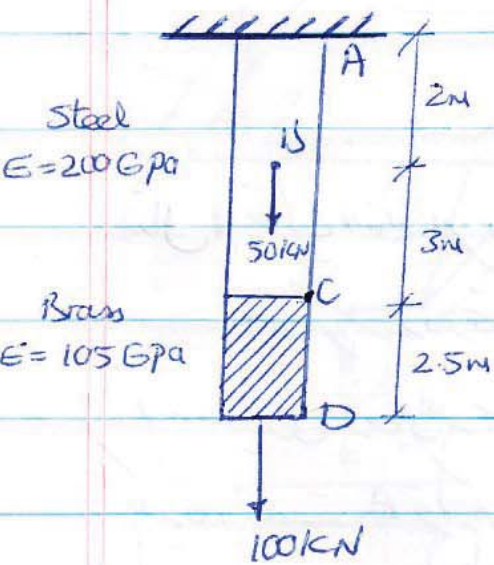 A
2m
Steel
E=200 Gpa
B
50KN
3m
C
Brass
E= 105 Gpa
2.5m
D
100KN